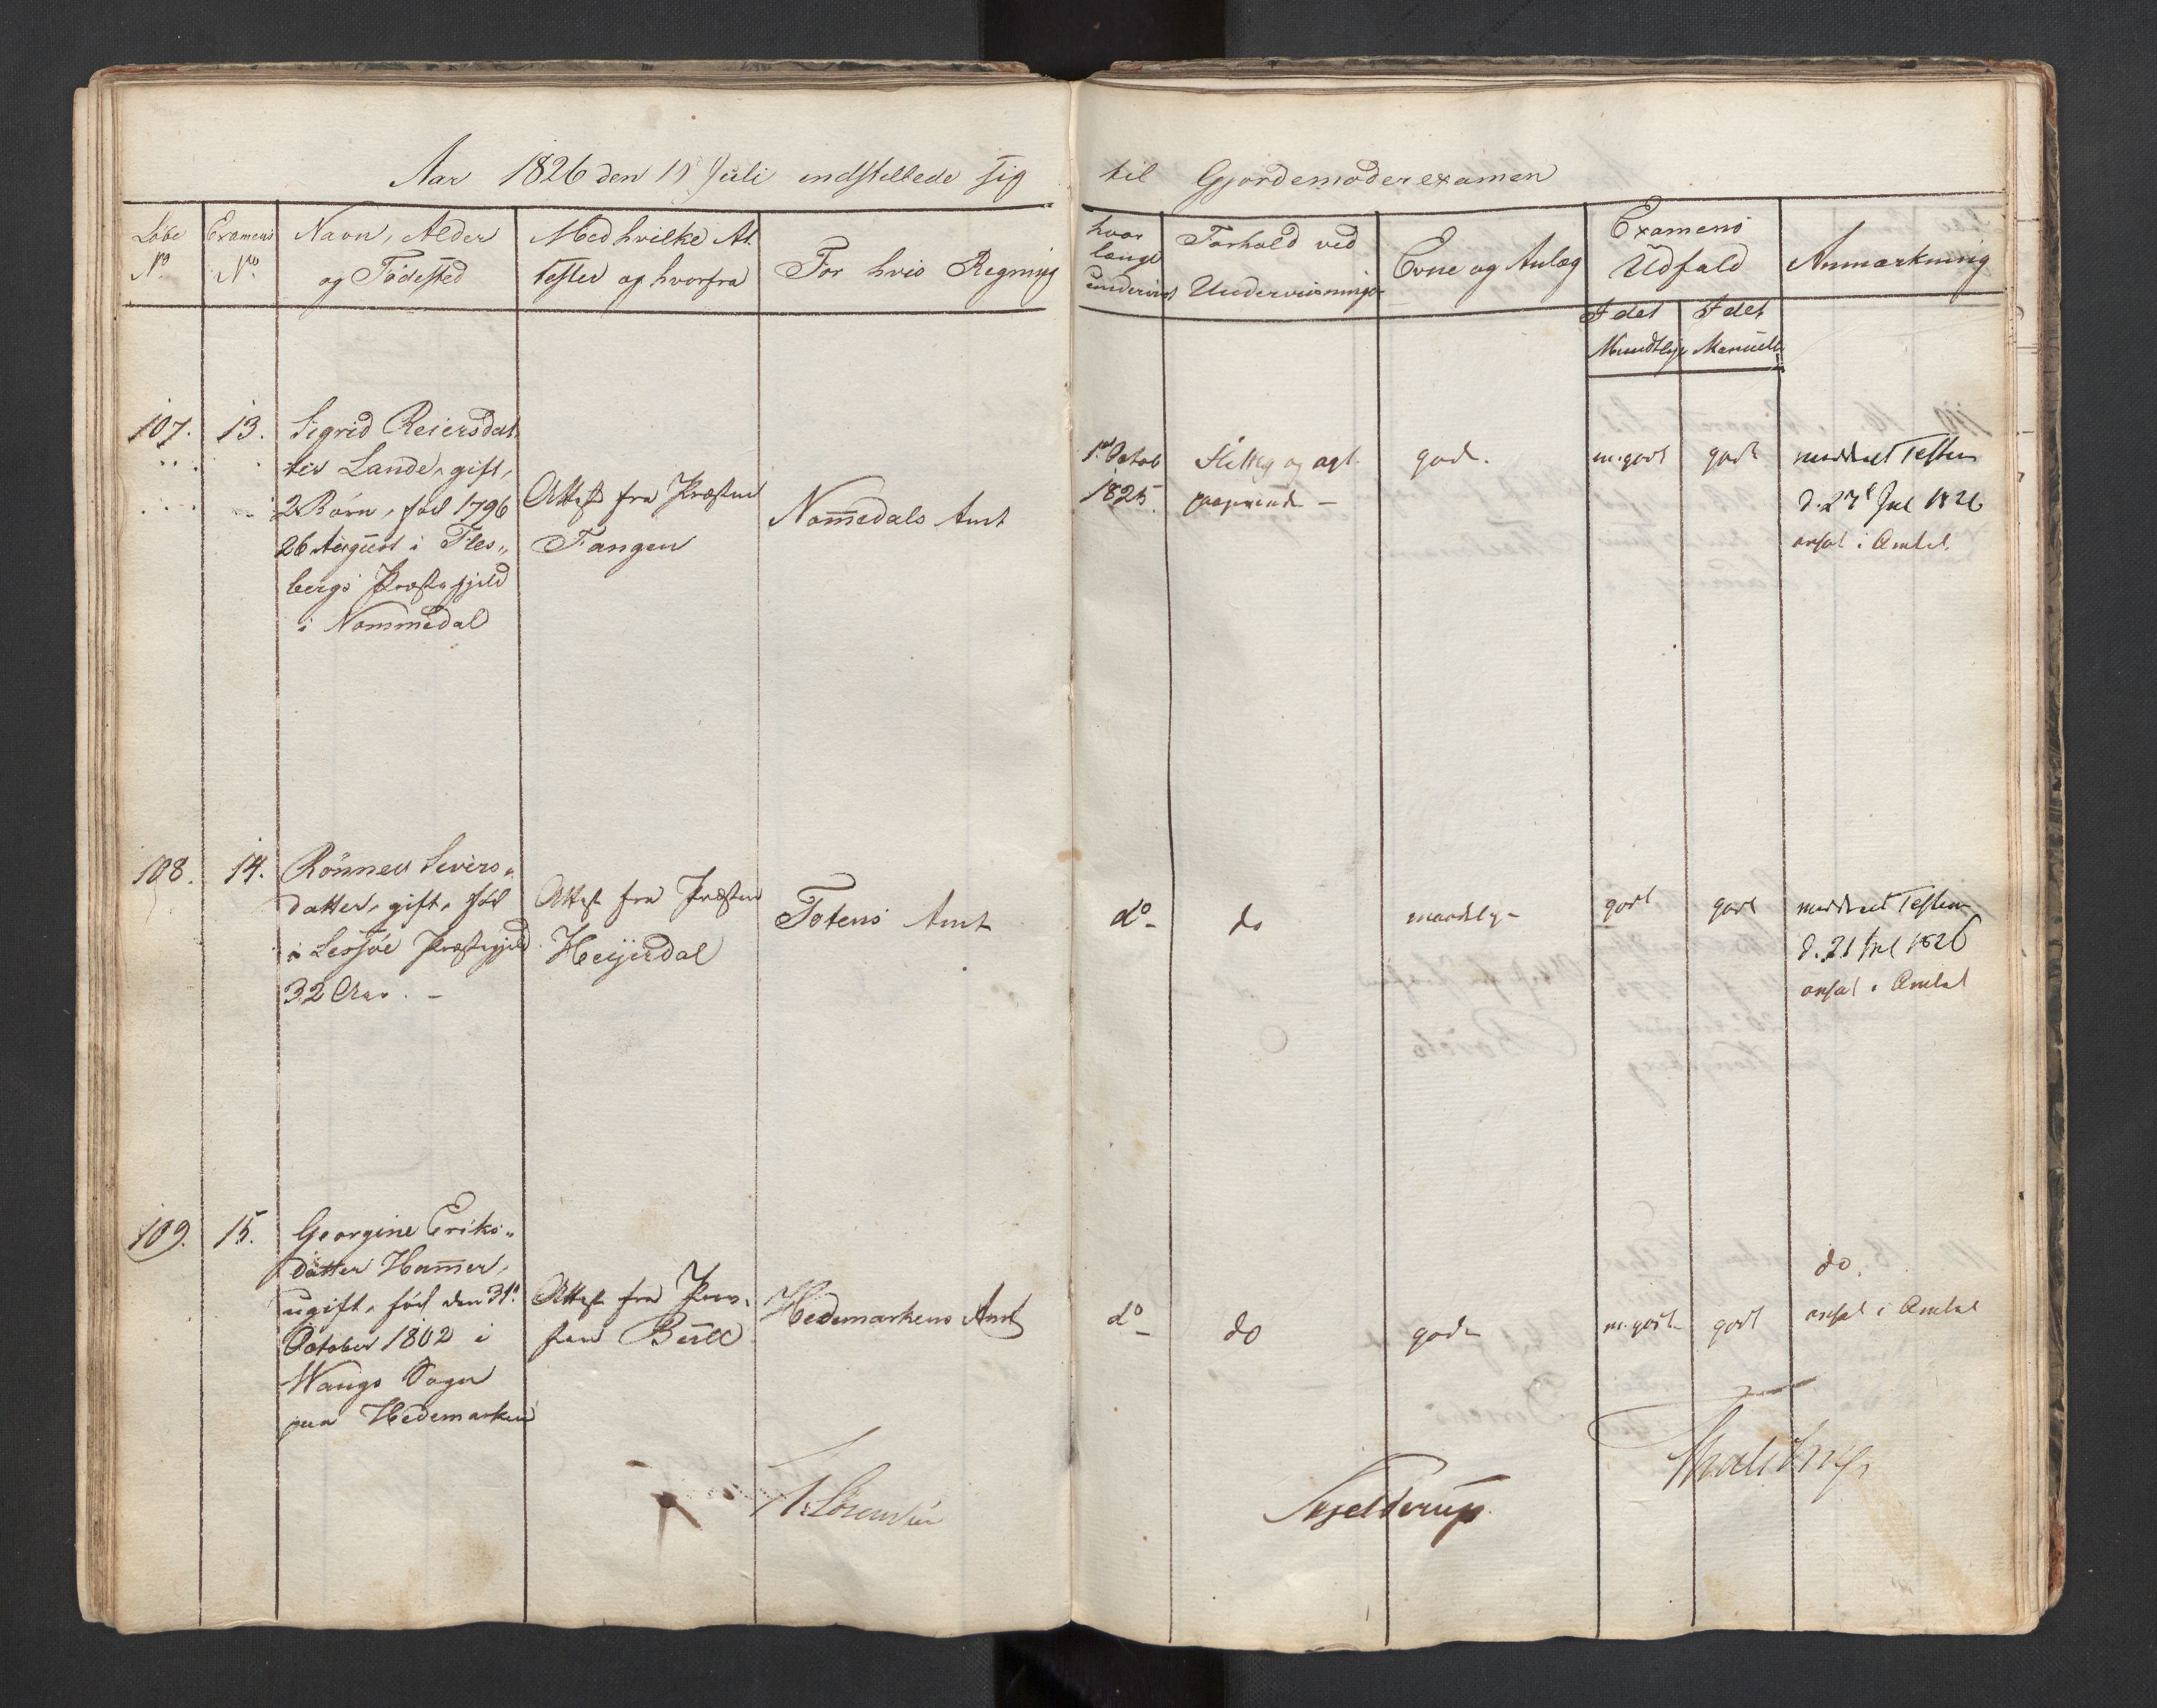 Aar 1826 den Juli indstillede sig til Gjordemoder examen
Løbe No
Examens No
Navn, Alder
og Födested
Med hvilke At
tester og hvorfra
For hvis Regning
hvor
længe
underviist
Forhold ved
Undervisningen
Evne og Anlæg
Examens
Udfald
I det
Mundtlige
I det
Manuelle
Anmærkning
107. 13.
Sigrid Reiersdat
ter Lande, gift,
2 Börn, föd 1796
26 August i Fles„
bergs Præstegjeld
i Nommedal
Attest fra Præsten
Fangen
Nom̅edals Amt
1st Octob
1825.
flittig og agt
paagivende –
god.
m.godt
godt
meddeelt Testim
d. 27de Jul 1826
ansat i Amtet.
108. 14.
Rönnev Sivers„
datter, gift, föd
i Lessøe Præstegjeld
32 Aar. –
Attest fra Præsten
Heyerdal
Totens Amt
do
do
maadelig –
godt
godt
meddeelt Testim
d. 21 Jul 1826
ansat i Amtet
109. 15.
Georgine Eriks„
datter Ham̅er,
ugift, föd den 31te
October 1802 i
Wangs Sogn
paa Hedemarken
Attest fra Præs„
ten Bull
Hedemarkens Amt
do
do
god
m.godt
godt
do.
ansat i Amtet
Sørenssen
Skjelderup.
Thulstrup